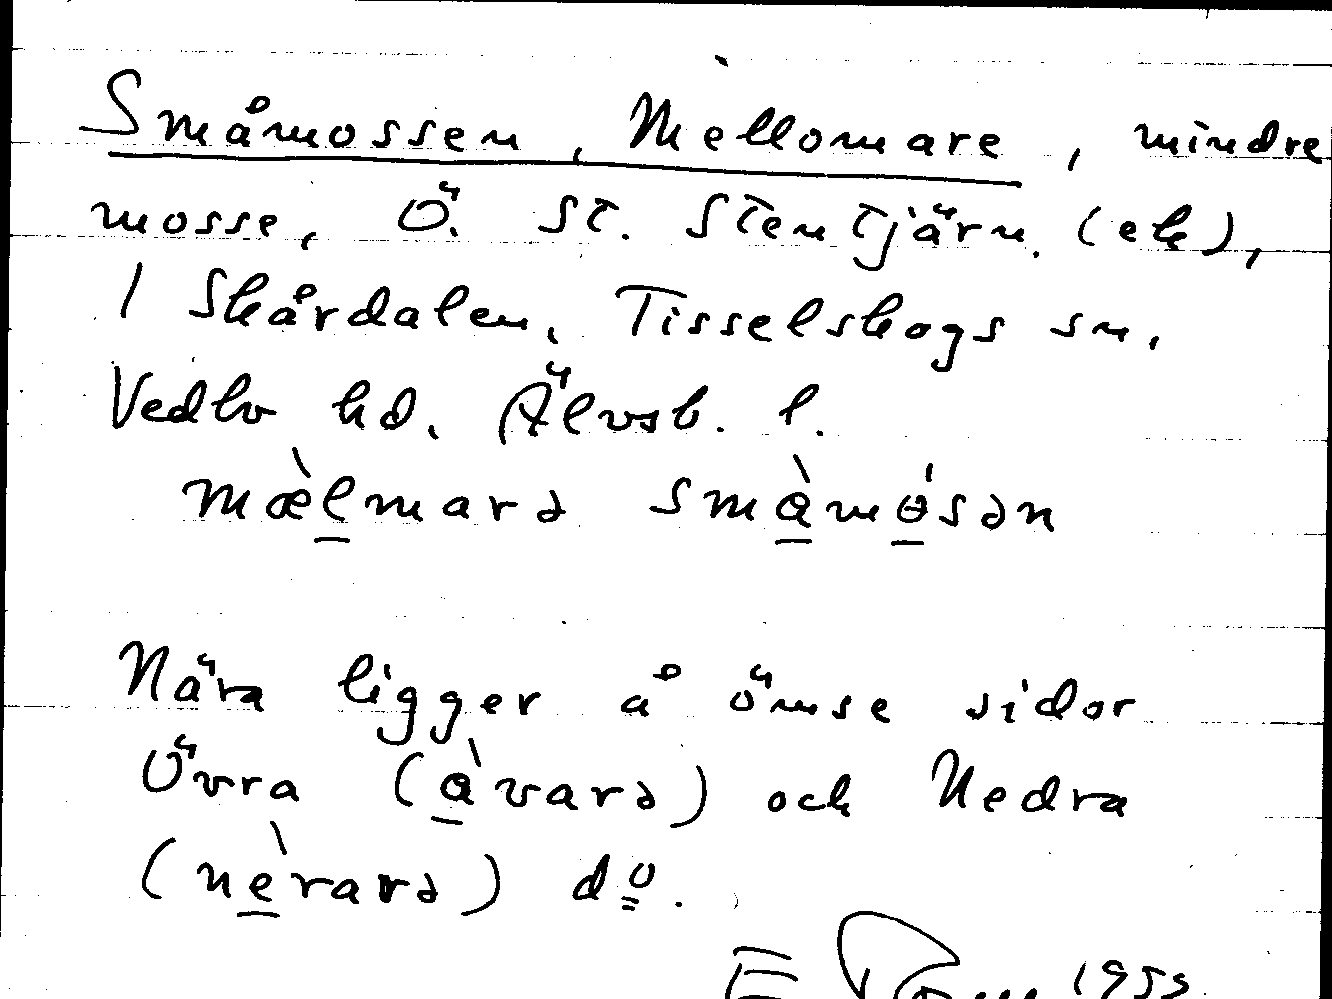 Småmossen, Mellomare, mindre
mosse, Ö. St. Stentjärn. (ek),
1 Skårdalen, Tisselskogs sn.
Vedbo hd. Älvsb. l.
mæ̀l̲marə småmósən
Nära ligger å ömse sidor
Övra (å̀varə) och Nedra
(nè̲rarə) dº.
1955